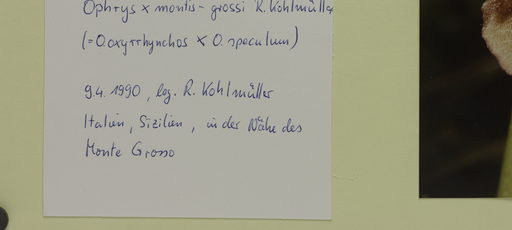 Ophrys x montis-grossi R. Kohlmüller
(=O.oxyrrhynchos X O. speculum)
9.4.1990, leg. R. Kohlmüller
Italien, Sizilien, in der Nähe des
Monte Grosso